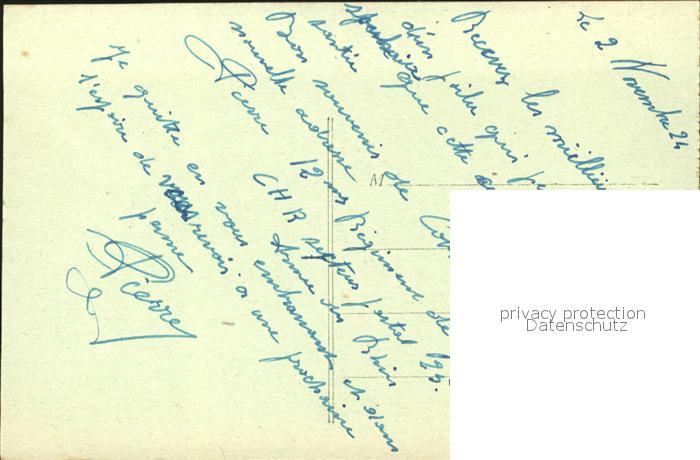 Le 2 Novembre 24
Recevez les meilleurs
d'un poilu qui
que cette
sortie
Bon souvenir de
nouvelle adresse
Pierre
12 me Régiment de
CHR secteur postal 192.
Armée du Rhin
Je quitte en vous embrassant et dans
l'espoire de vous revoir a une prochaine
perme
Pierre
M
privacy protection
Datenschutz